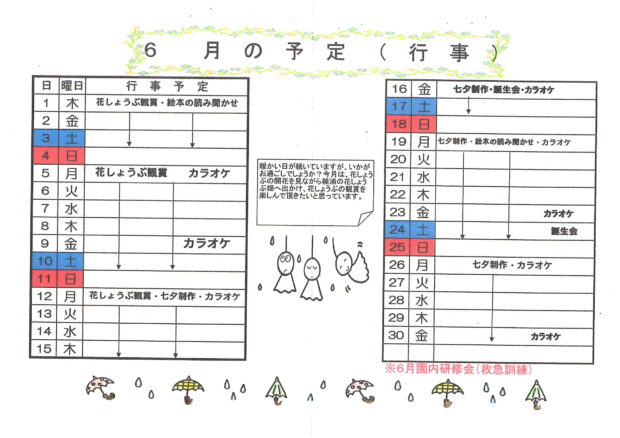 6 月の予定(行事)
日 曜日 行事予定
1 木 花しょうぶ観賞・絵本の読み聞かせ
2 金
3 土
4 日
5 月 花しょうぶ観賞 カラオケ
6 火
7 水
8 木
9 金 カラオケ
10 土
11 日
12 月 花しょうぶ観賞・七夕制作・カラオケ
13 火
14 水
15 木
暖かい日が続いていますが、いかが
お過ごしでしょうか?今月は、花しょう
ぶの開花を見ながら横浜の花しょう
ぶ畑へ出かけ、花しょうぶの観賞を
楽しんで頂きたいと思っています。
16 金 七夕制作・誕生会・カラオケ
17 土
18 日
19 月 七夕制作・絵本の読み聞かせ・カラオケ
20 火
21 水
22 木
23 金 カラオケ
24 土 誕生会
25 日
26 月 七夕制作・カラオケ
27 火
28 水
29 木
30 金 カラオケ
※6月園内研修会(救急訓練)